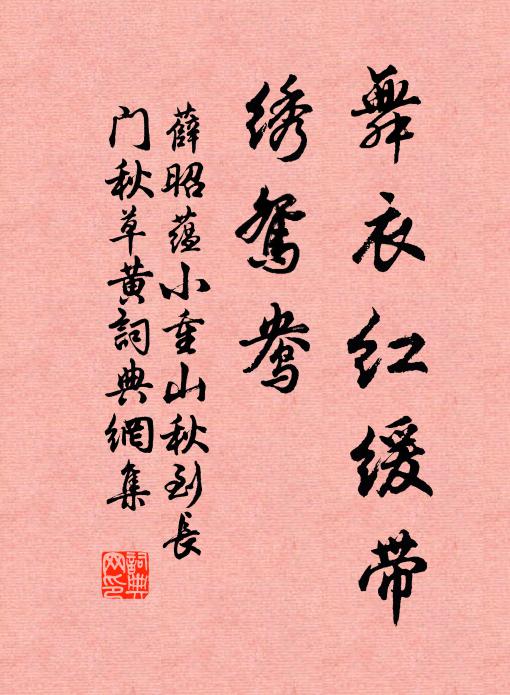 舞衣红缓带
绣鸳鸯
薛昭蕴小重山秋到长
门秋草黄詞典網集
詞典网印